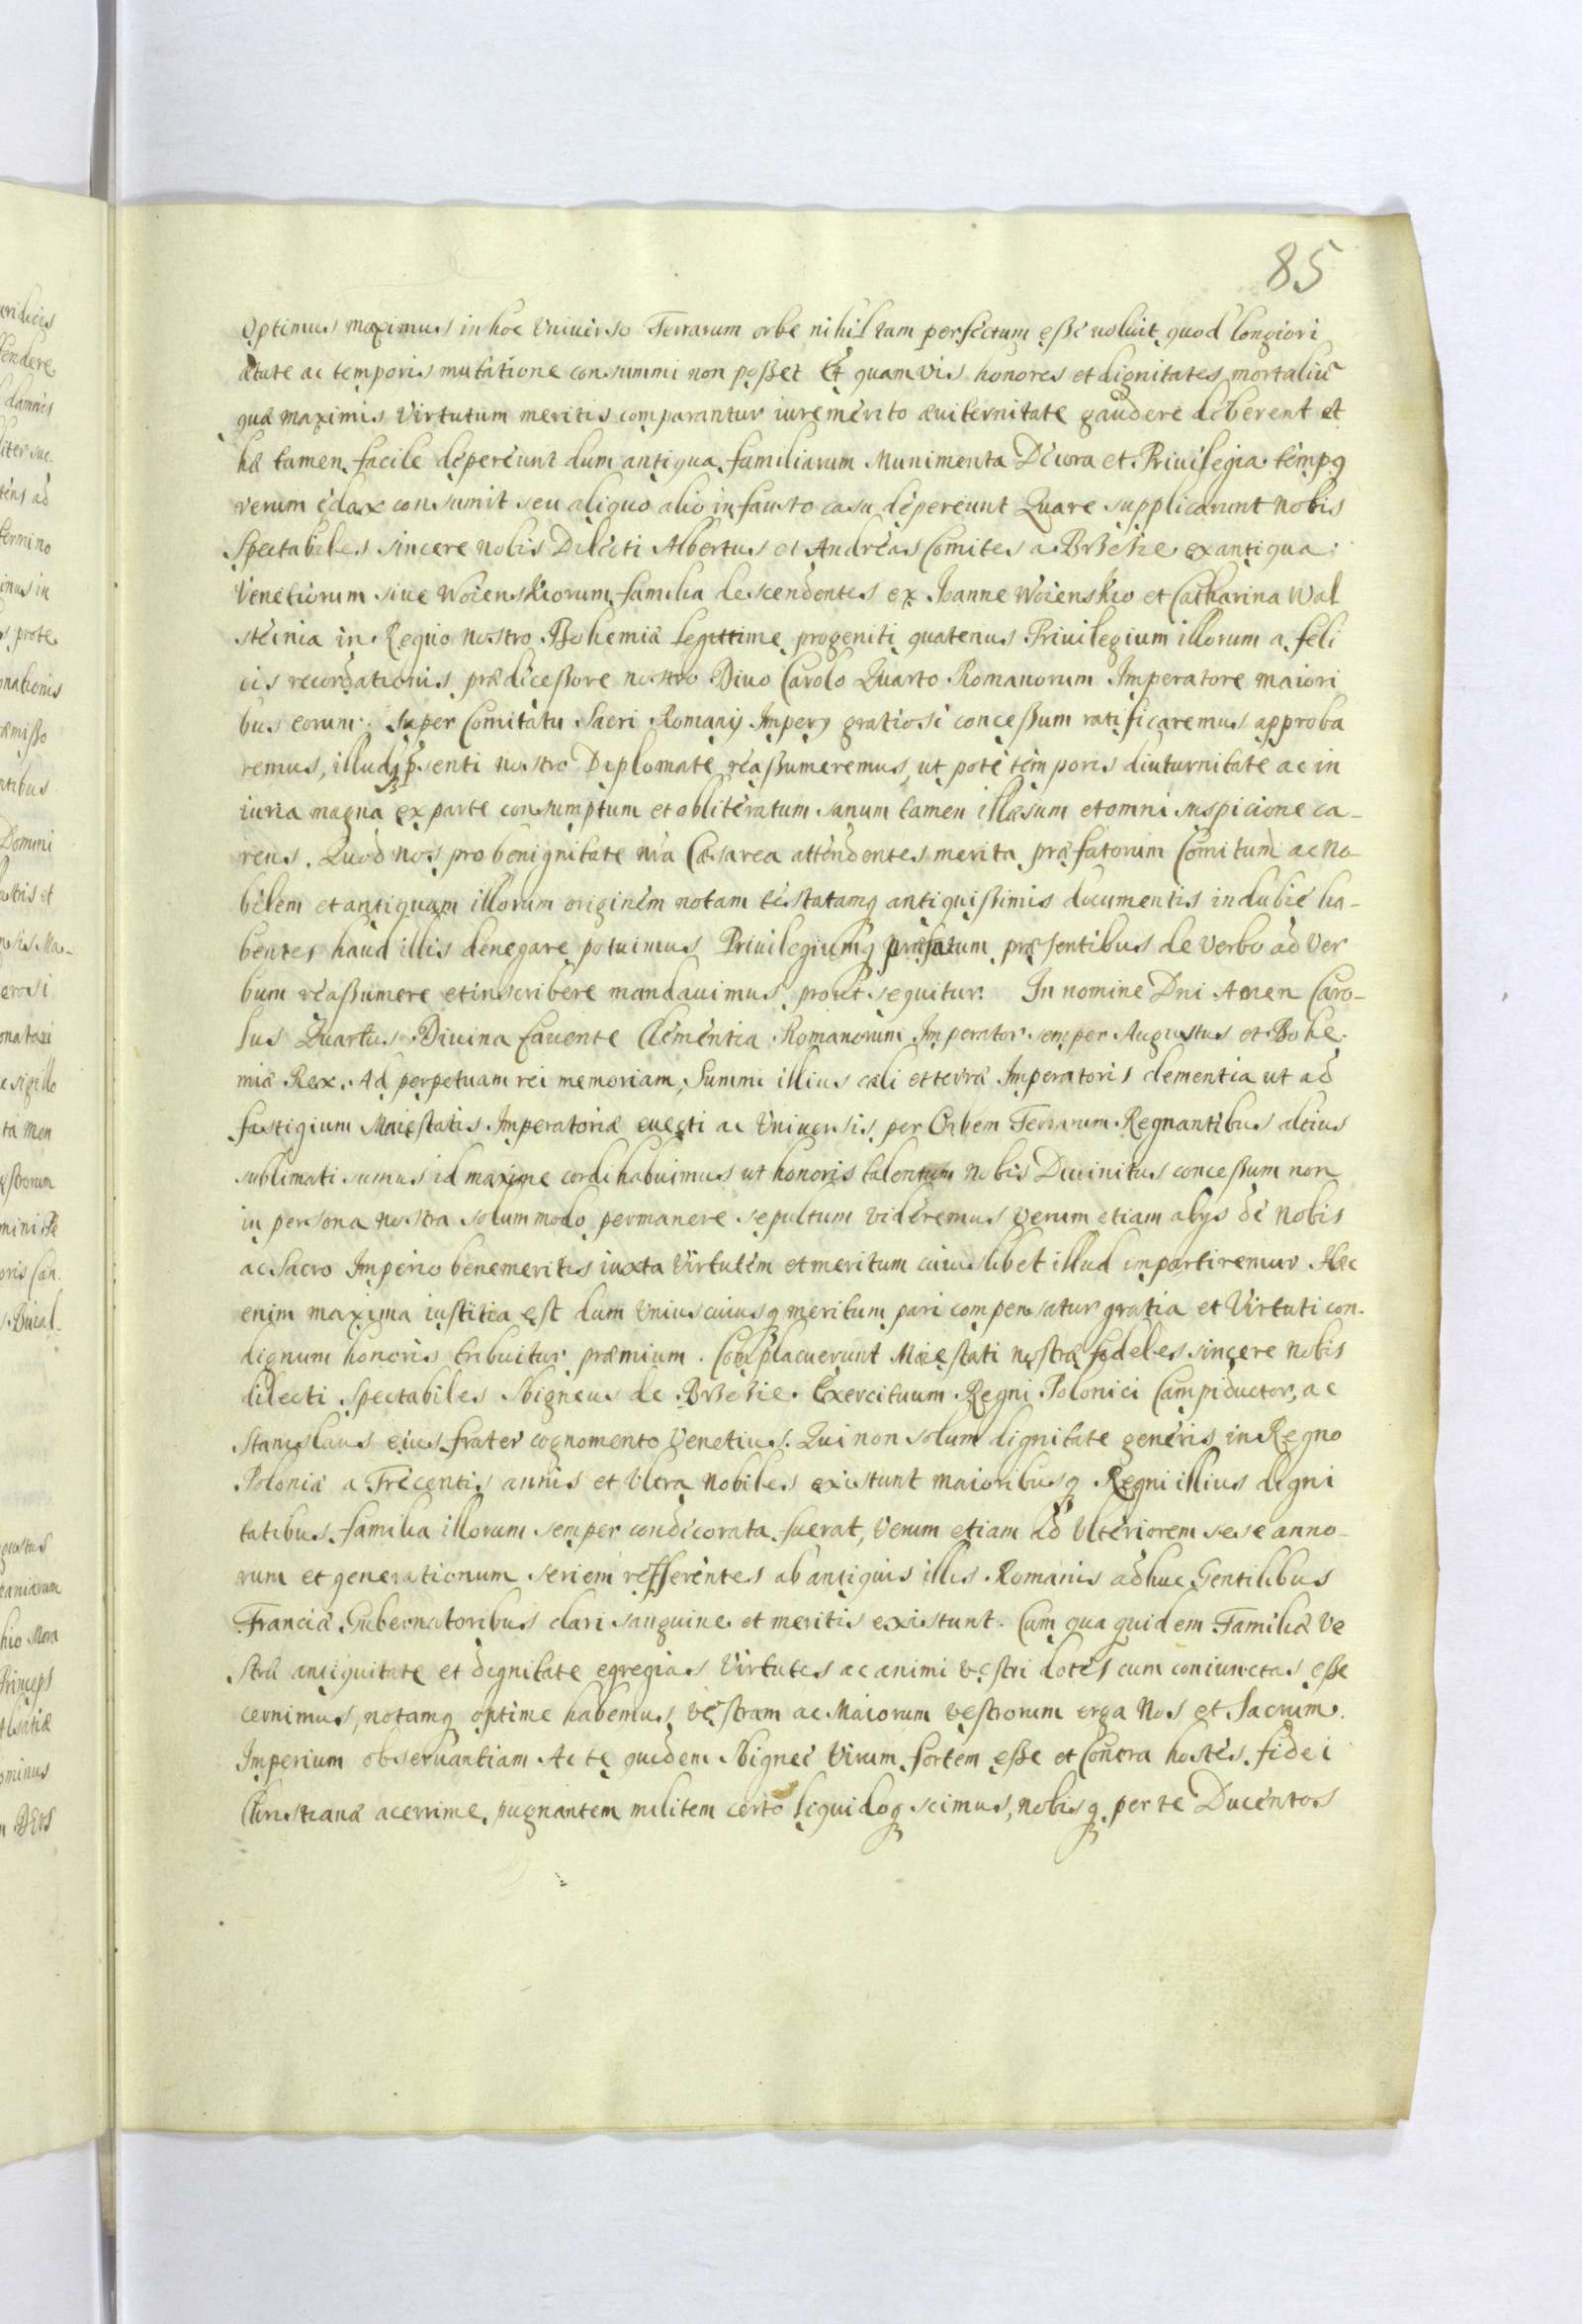 85
Optimus maximus in hoc Universo Terrarum orbe nihil tam perfectum esse voluit quod longiori
ætate ac temporis mutatione consummi non posset Et quamvis honores et dignitates mortaliũ
quæ maximis Virtutum meritis comparantur iure merito æviternitate gaudere deberent et
hæ tamen facile depereunt dum antiqua familiarum Munimenta Decora et Privilegia tempq
rerum edax consumit seu aliquo alio infausto casu depereunt Quare supplicarunt nobis
Spectabiles sincere nobis Dilecti Albertus et Andreas Comites a Brzezie ex antiqua
Venetiorum sive Woienskiorum familia descendentes ex Joanne Woienskio et Catharina Wal
steinia in Regno nostro Bohemiæ legittime progeniti quatenus Privilegium illorum a feli
cis recordationis prædecessore nostro Divo Carolo Quarto Romanorum Imperatore maiori
bus eorum super Comitatu Sacri Romanij Impery gratiose concessum ratificaremus approba
remus, illudq psenti nostro Diplomate reassumeremus, ut pote temporis diuturnitate ac in
iuria magna ex parte consumptum et obliteratum sanum tamen illæsum et omni suspicione ca-
rens. Quod nos pro benignitate nr̃a Cæsarea attendentes merita præfatorum Comitum ac no-
bilem et antiquam illorum originem notam testatamq antiquissimis documentis indubie ha-
bentes haud illis denegare potuimus Privilegiumq præfatum præsentibus de verbo ad ver
bum reassumere et inscribere mandavimus prout sequitur. In nomine Dni Amen Caro-
lus Quartus Divina favente Clementia Romanorum Imperator semper Augustus et Bohe-
miæ Rex. Ad perpetuam rei memoriam, Summi illius cæli et terræ Imperatoris clementia ut ad
fastigium Maiestatis Imperatoriæ evecti ac Universis per Orbem Terrarum Regnantibus altius
sublimati sumus id maxime cordi habuimus ut honoris talentum nobis Divinitus concessum non
in persona nostra solummodo permanere sepultum videremus verum etiam alys de nobis
ac Sacro Imperio benemeritis iuxta Virtutem et meritum cuiuslibet illud impartiremur Hæc
enim maxima iustitia est dum Uniuscuiusq meritum pari compensatur gratia et Virtuti con-
dignum honoris tribuitur præmium. Complacuerunt Maiestati nostræ fideles sincere nobis
dilecti Spectabiles Sbigneus de Brzezie Exercituum Regni Polonici Campiductor, ac
Stanislaus eius frater cognomento Venetius. Qui non solum dignitate generis in Regno
Poloniæ a Trecentis annis et Ultra nobiles existunt maioribusq Regni illius digni
tatibus familia illorum semper condecorata fuerat, Verum etiam ad Ulteriorem sese anno-
rum et generationum seriem refferentes ab antiquis illis Romanis adhuc Gentilibus
Franciæ Gubernatoribus clari sanguine et meritis existunt. Cum qua quidem Familiæ Ve
stræ antiquitate et dignitate egregias Virtutes ac animi vestri dotes cum coniunctas esse
cernimus, notamq optime habemus vestram ac Maiorum vestrorum erga Nos et Sacrum
Imperium observantiam Ac te quidem Sbignee Virum fortem esse et Contra hostes fidei
Christianæ acerrime pugnantem militem certo liquidoq scimus, nobisq per te Ducentos